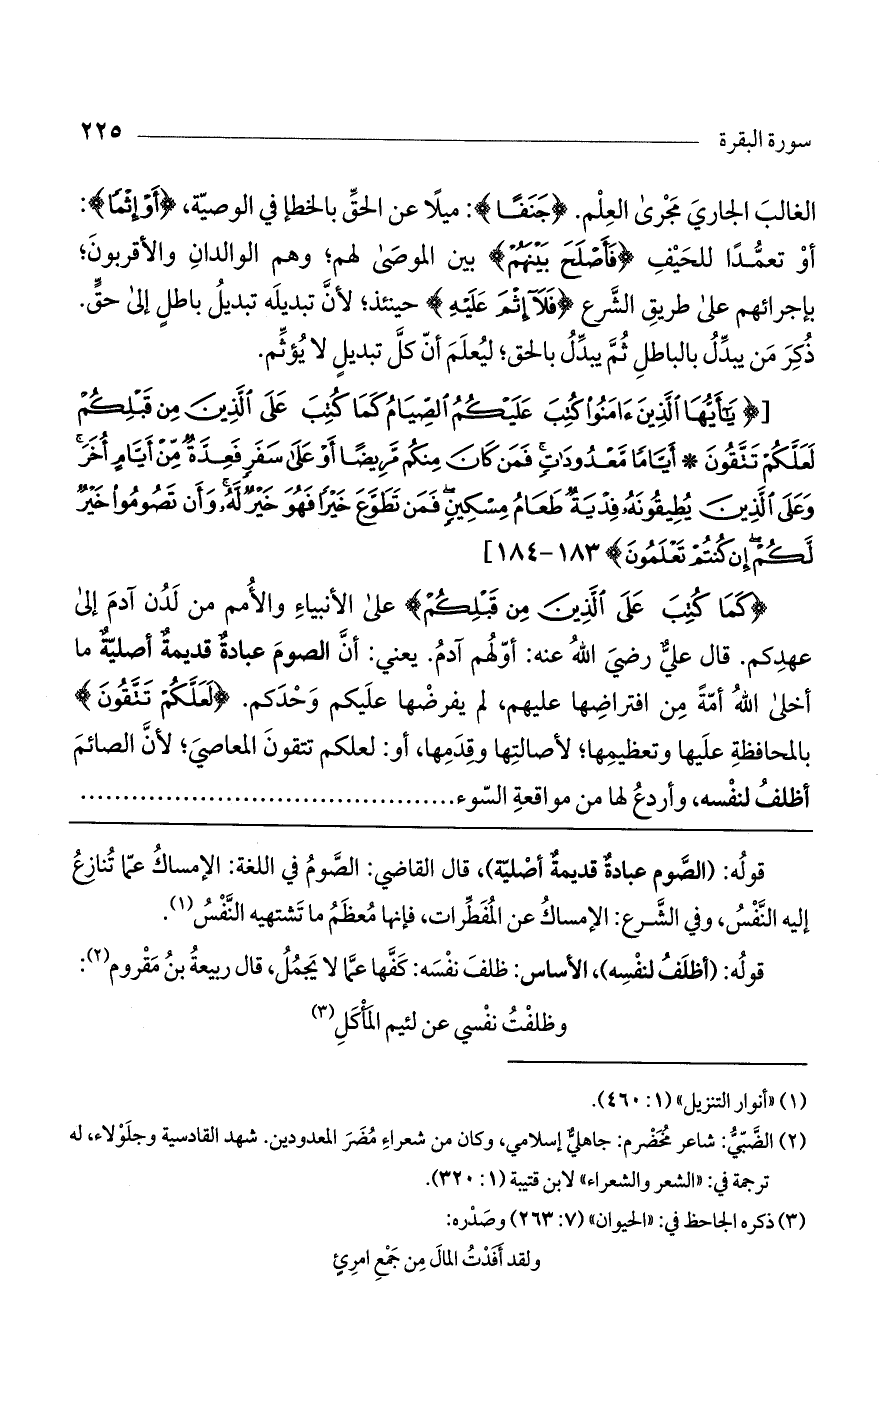 سورة البقرة ٢٢٥
الغالبَ الجاريَ مَجْرىٰ العِلْم. ﴿جَنَفًا﴾: ميلًا عن الحقِّ بالخطإ في الوصيّة، ﴿أَوْ إِثْمًا﴾:
أوْ تعمُّدًا للحَيْفِ ﴿فَأَصْلَحَ بَيْنَهُمْ﴾ بين الموصَىٰ لهم؛ وهم الوالدانِ والأقربونَ؛
بإجرائهم علىٰ طريقِ الشَّرع ﴿فَلَآ إِثْمَ عَلَيْهِ﴾ حينئذ؛ لأنَّ تبديلَه تبديلُ باطلٍ إلىٰ حقٍّ.
ذُكِرَ مَن يبدِّلُ بالباطلِ ثُمَّ يبدِّلُ بالحق؛ ليُعلَمَ أنّ كلَّ تبديلٍ لا يُؤثِّم.
[﴿يَـٰٓأَيُّهَا ٱلَّذِينَ ءَامَنُوا۟ كُتِبَ عَلَيْكُمُ ٱلصِّيَامُ كَمَا كُتِبَ عَلَى ٱلَّذِينَ مِن قَبْلِكُمْ
لَعَلَّكُمْ تَتَّقُونَ * أَيَّامًا مَّعْدُودَاتٍ ۚ فَمَن كَانَ مِنكُم مَّرِيضًا أَوْ عَلَىٰ سَفَرٍ فَعِدَّةٌ مِّنْ أَيَّامٍ أُخَرَ ۚ
وَعَلَى ٱلَّذِينَ يُطِيقُونَهُۥ فِدْيَةٌ طَعَامُ مِسْكِينٍ ۖ فَمَن تَطَوَّعَ خَيْرًا فَهُوَ خَيْرٌ لَّهُۥ ۚ وَأَن تَصُومُوا۟ خَيْرٌ
لَّكُمْ ۖ إِن كُنتُمْ تَعْلَمُونَ﴾ ١٨٣-١٨٤]
﴿كَمَا كُتِبَ عَلَى ٱلَّذِينَ مِن قَبْلِكُمْ﴾ علىٰ الأنبياءِ والأُمم من لَدُن آدمَ إلىٰ
عهدِكم. قال عليٌّ رضيَ اللهُ عنه: أوّلُهم آدمُ. يعني: أنَّ الصومَ عبادةٌ قديمةٌ أصليّةٌ ما
أخلىٰ اللهُ أمّةً مِن افتراضِها عليهم، لم يفرضْها علَيكم وَحْدَكم. ﴿لَعَلَّكُمْ تَتَّقُونَ﴾
بالمحافظةِ علَيها وتعظيمِها؛ لأصالتِها وقِدَمِها، أو: لعلكم تتقونَ المعاصيَ؛ لأنَّ الصائمَ
أظلفُ لنفْسه، وأردعُ لها من مواقعةِ السّوء..........................................
قولُه: (الصَّوم عبادةٌ قديمةٌ أصْليّة)، قال القاضي: الصَّومُ في اللغة: الإمساكُ عمّا تُنازعُ
إليه النَّفْسُ، وفي الشَّرع: الإمساكُ عن المُفَطِّرات، فإنها مُعظَمُ ما تَشتهيه النَّفْسُ (١).
قولُه: (أظلَفُ لنفْسِه)، الأساس: ظلفَ نفْسَه: كَفَّها عمَّا لا يَجمُلُ، قال ربيعةُ بنُ مَقْروم(٢):
وظلفْتُ نفْسي عن لئيم المَأْكَلِ(٣)
(١) «أنوار التنزيل» (١: ٤٦٠).
(٢) الضَّبِّيُّ: شاعر مُخَضْرم: جاهليٌّ إسلامي، وكان من شعراءِ مُضَرَ المعدودين. شهد القادسية وجلَوْلاء، له
ترجمة في: «الشعر والشعراء» لابن قتيبة (١: ٣٢٠).
(٣) ذكره الجاحظ في: «الحيوان» (٧: ٢٦٣) وصَدْره:
ولقد أفَدْتُ المالَ مِن جَمْعِ امرِئٍ